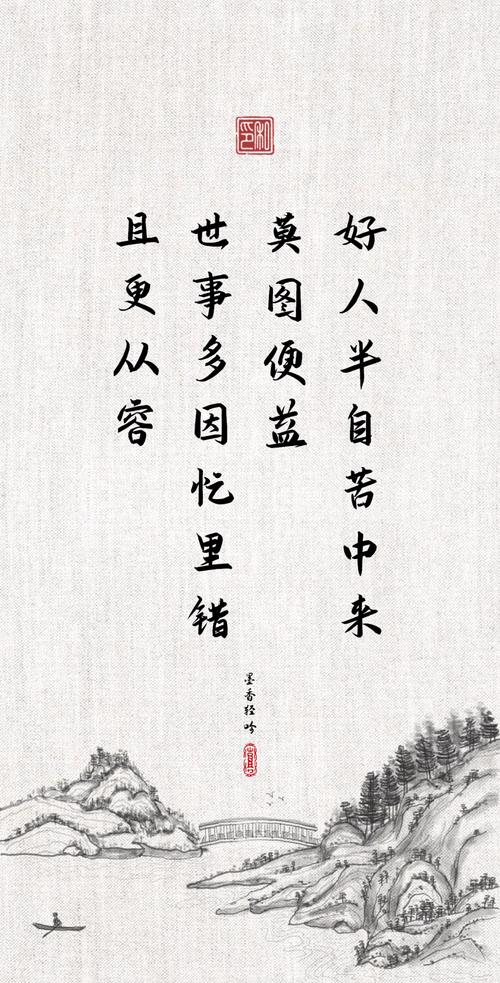 好人半自苦中来
莫图便益
世事多因忙里错
且更从容
墨香轻吟